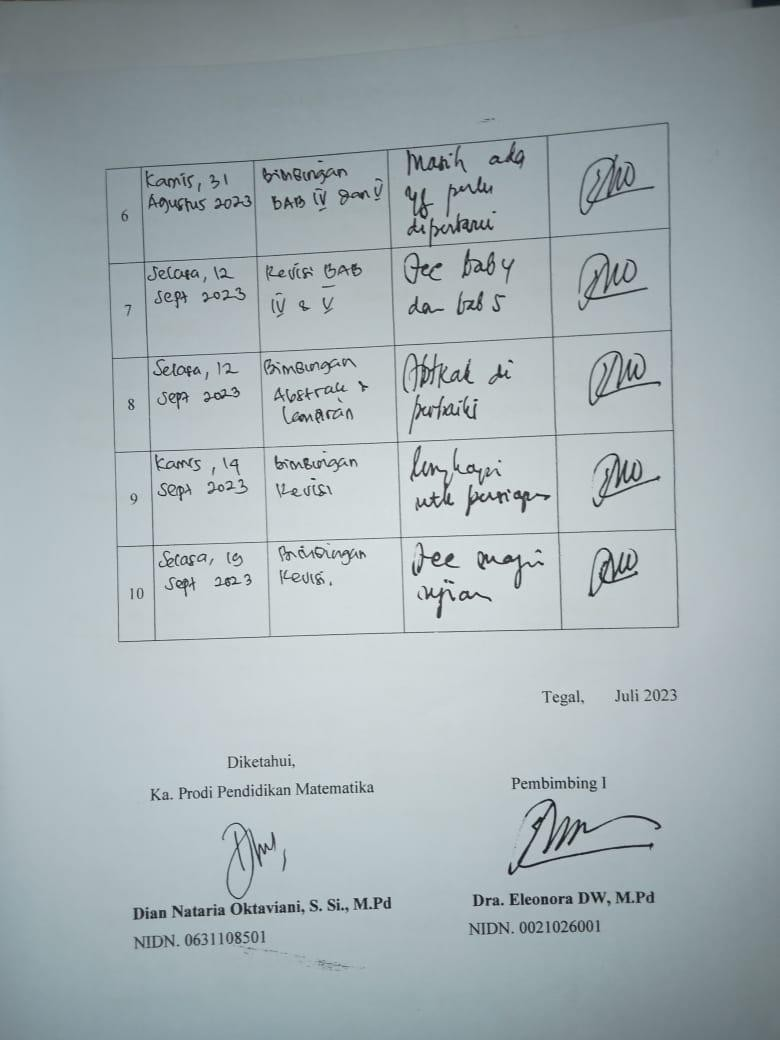 6
Kamis, 31
Agustus 2023
Bimbingan
BAB IV dan V
Masih ada
yg perlu
diperbaiki
7
Selasa, 12
Sept 2023
Revisi BAB
IV & V
Acc bab 4
dan bab 5
8
Selasa, 12
Sept 2023
Bimbingan
Abstrak &
Lampiran
di
perbaiki
9
Kamis, 14
Sept 2023
Bimbingan
Revisi
lengkapi
utk
10
Selasa, 19
Sept 2023
Bimbingan
Revisi.
Acc maju
ujian
Tegal, Juli 2023
Diketahui,
Ka. Prodi Pendidikan Matematika
Pembimbing I
Dian Nataria Oktaviani, S. Si., M.Pd
NIDN. 0631108501
Dra. Eleonora DW, M.Pd
NIDN. 0021026001